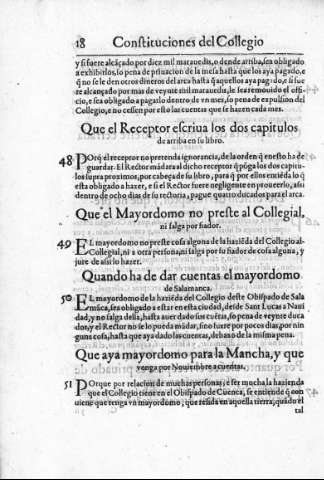 18 Constituciones del Collegio
y si fuere alcãçado por diez mil marauedis, o dende arriba, sea obligado
a exhibirlos, so pena de priuacion de la mesa hasta que los aya pagado, e
q̃ no se le den otros dineros del arca hasta q̃ aquellos aya pagado, e si fue
re alcançado por mas de veynte mil marauedis, le sea remouido el offi-
cio, e sea obligado a pagarlo dentro de vn mes, so pena de expulsion del
Collegio, e no cessen por esto las cuentas que se hazen cada mes.
Que el Receptor escriua los dos capitulos
de arriba en su libro.
48 Porq̃ el receptor no pretenda ignorancia, de la orden q̃ en esto ha de
guardar. El Rector mãdara al dicho receptor q̃ põga los dos capitu-
los supra proximos, por cabeça de su libro, para q̃ por ellos entiẽda lo q̃
esta obligado a hazer, e si el Rector fuere negligente en proueerlo, assi
dentro de ocho dias de su rectoria, pague quatro ducados para el arca.
Que el Mayordomo no preste al Collegial,
ni salga por fiador.
49 El mayordomo no preste cosa alguna de la haziẽda del Collegio al
Collegial, ni a otra persona, ni salga por su fiador de cosa alguna, y
jure de assi lo hazer.
Quando ha de dar cuentas el mayordomo
de Salamanca.
50 El mayordomo de la haziẽda del Collegio deste Obispado de Sala
mãca, sea obligado a estar en esta ciudad, desde Sant Lucas a Naui
dad, y no salga della, hasta auer dado sus cuẽtas, so pena de veynte duca
dos, y el Rector no se lo pueda mãdar, sino fuere por pocos dias por nin
guna cosa, hasta que aya dado las cuentas, debaxo de la misma pena.
Que aya mayordomo para la Mancha, y que
venga por Nouiembre a cuentas.
51 Porque por relacion de muchas personas, e ser mucha la hazienda
que el Collegio tiene en el Obispado de Cuenca, se entiende q̃ con
uiene que tenga vn mayordomo, que resida en aquella tierra, quãdo el
tal